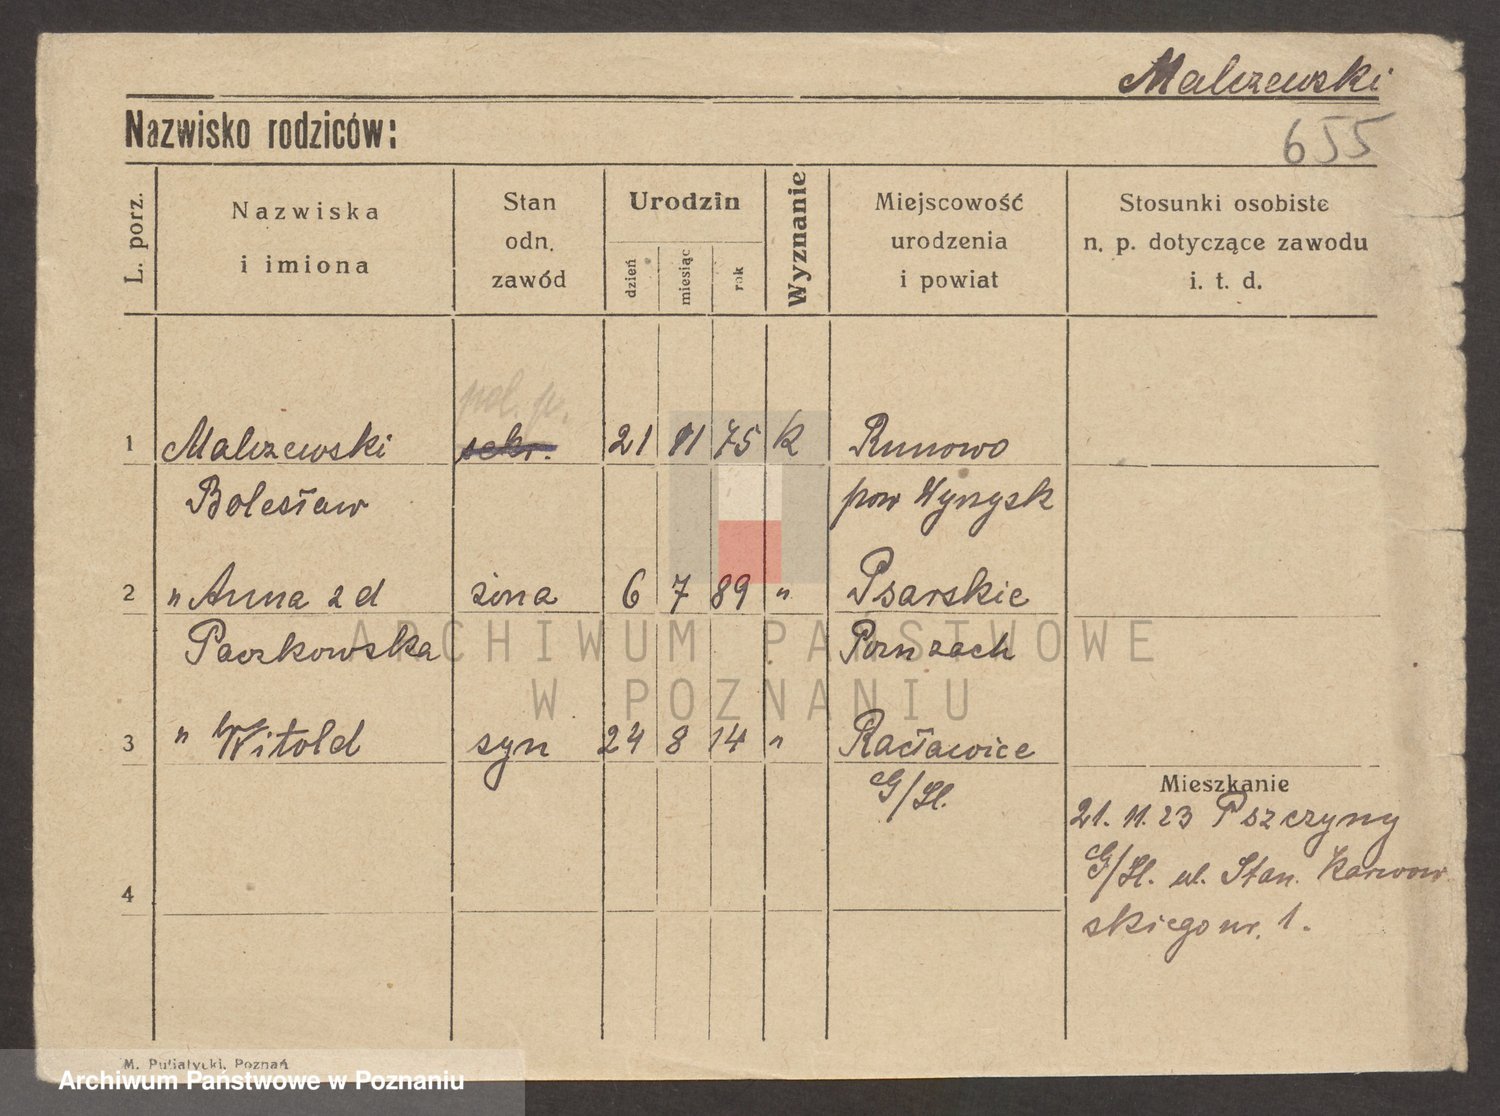 Malczewski
Nazwisko rodziców:
655
L. porz.
Nazwiska
i imiona
Stan
odn.
zawód
Urodzin
dzień
miesiąc
rok
Wyznanie
Miejscowość
urodzenia
i powiat
Stosunki osobiste
n. p. dotyczące zawodu
i. t. d.
pol. p.
1 Malczewski sekr. 21 11 75 k Runowo
Bolesław pow Wyrzysk
2 " Anna z d żona 6 7 89 " Psarskie
Paczkowska
3 " Witold syn 24 8 14 " Racławice
G/Śl.
Mieszkanie
21. 11. 23 Pszczyny
G/Śl. ul. Stan. Karwow
skiego nr. 1.
4
M. Putiatycki, Poznań
ARCHIWUM PAŃSTWOWE
W POZNANIU
Archiwum Państwowe w Poznaniu